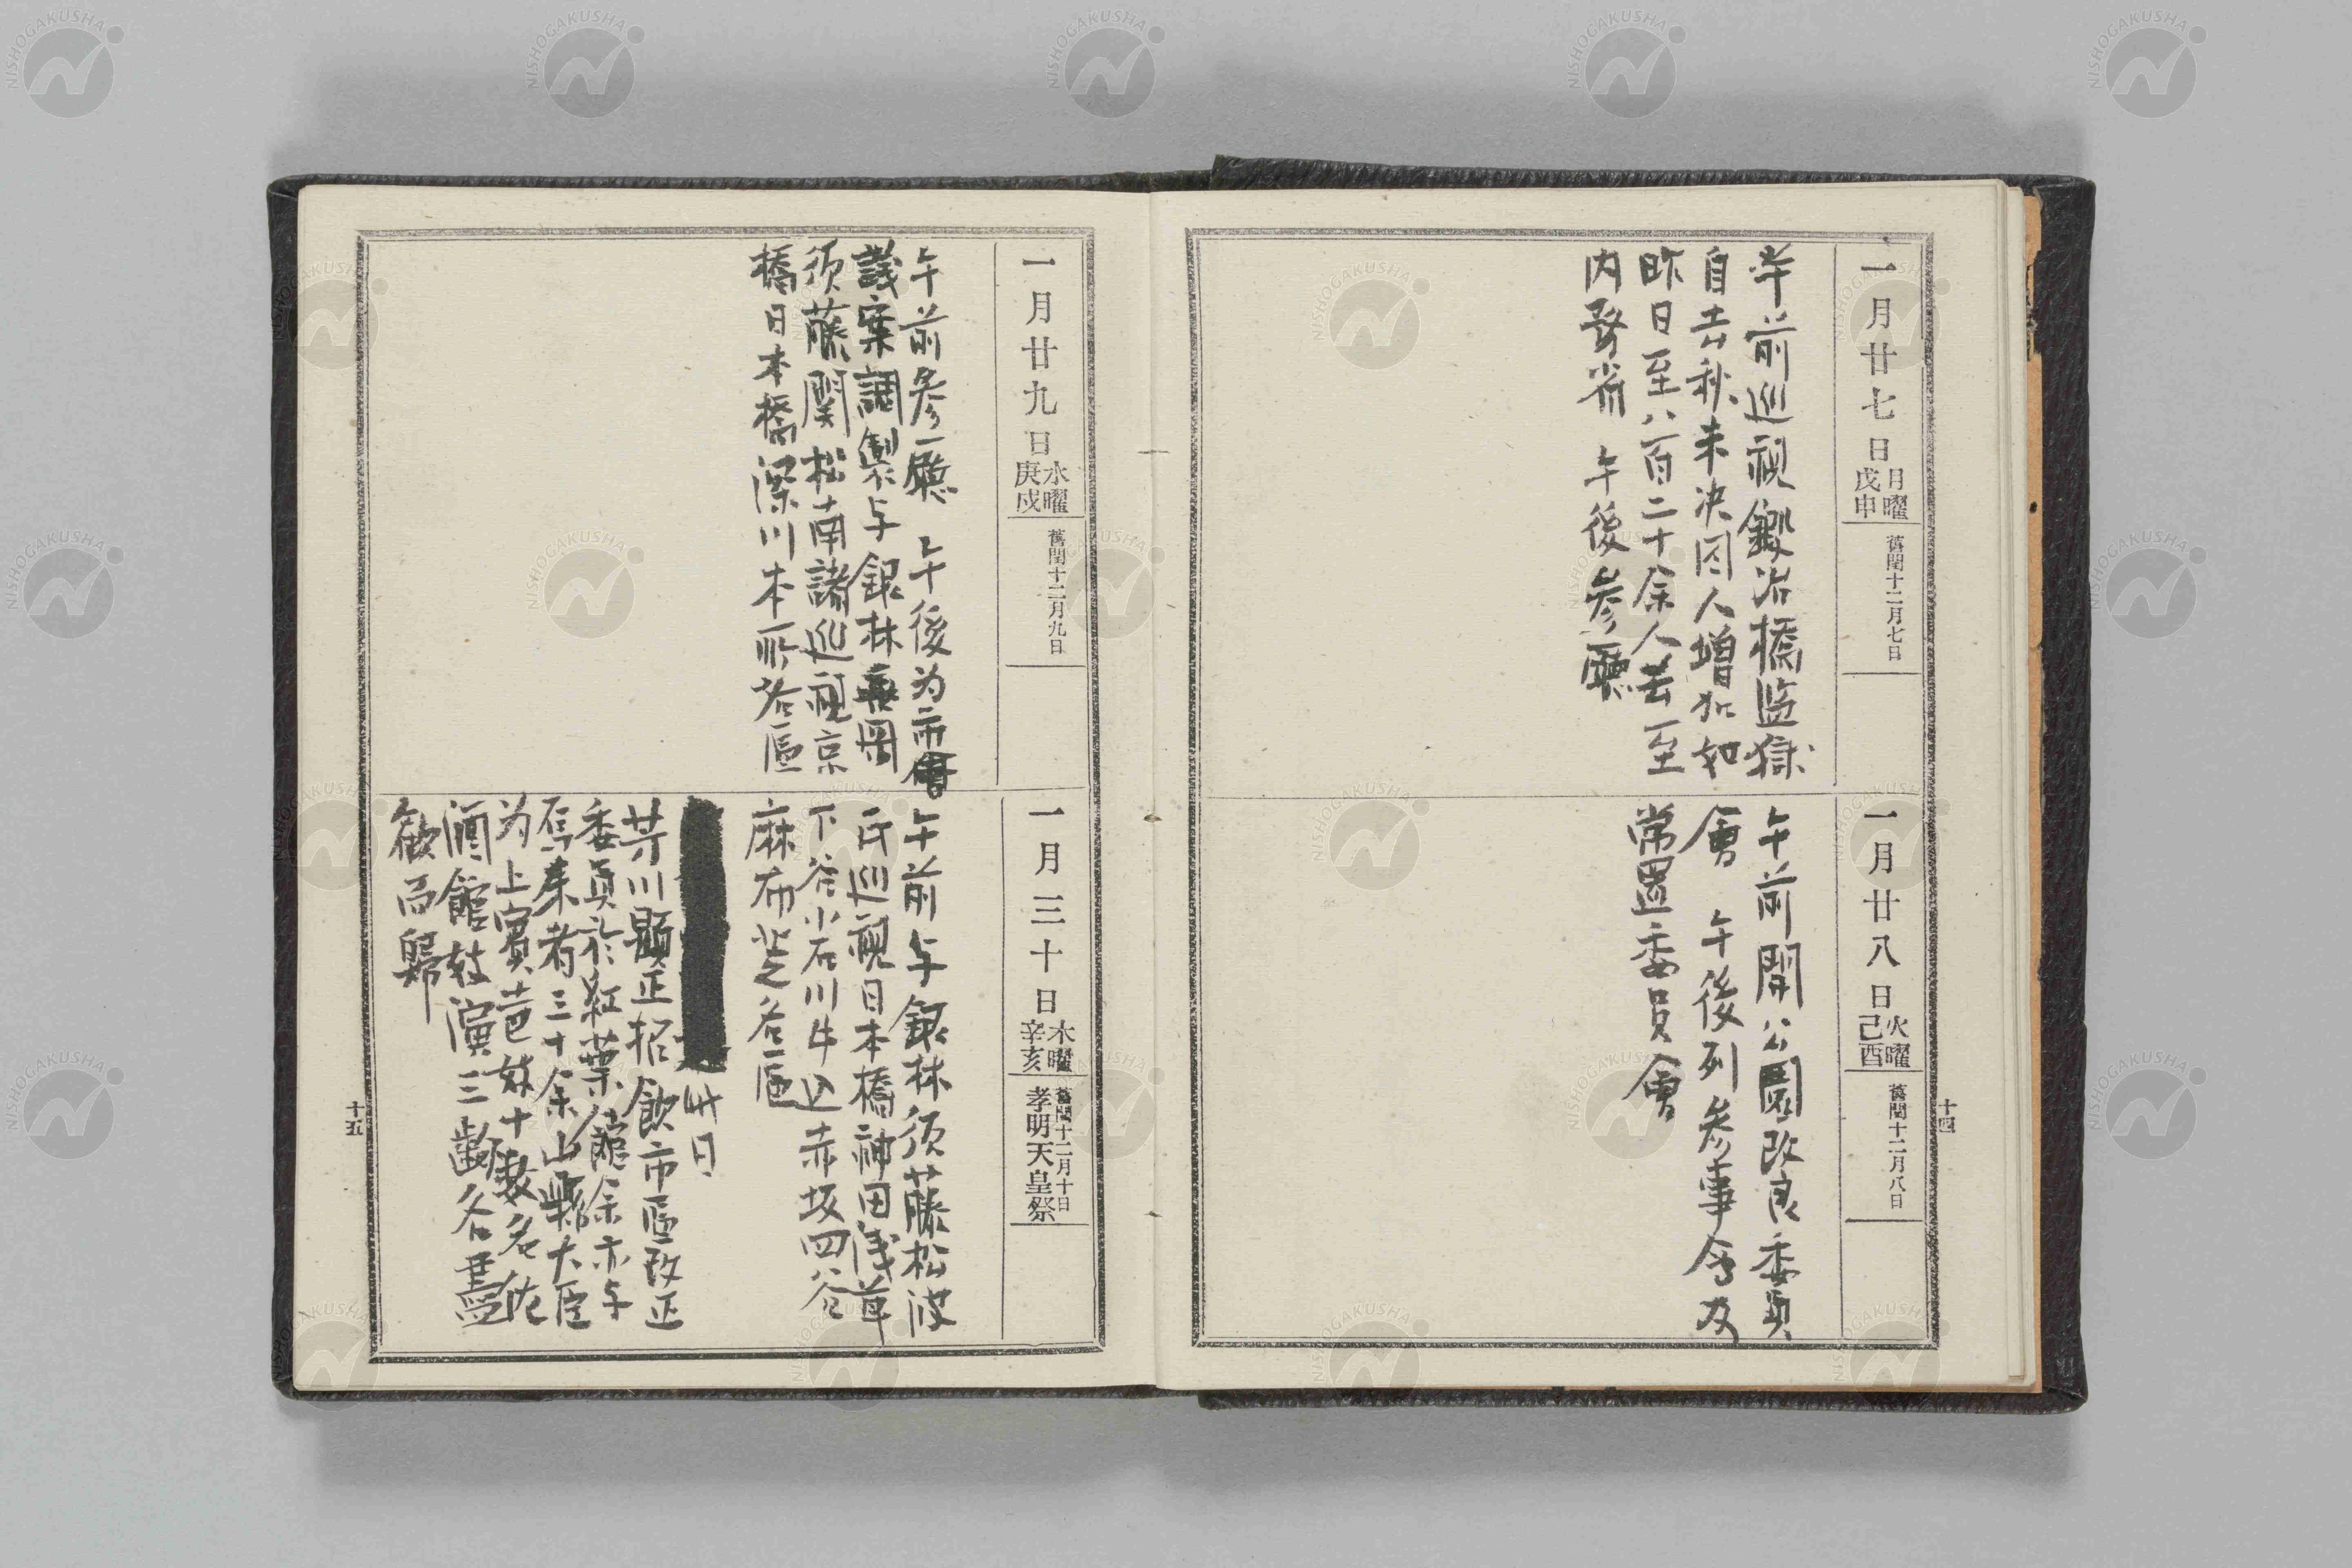 一月廿七日
月曜
戊申
舊閏十二月七日
午前巡視鍛冶橋監獄
自去秋未決囚人増加如
昨日至八百二十余人去至
内務省 午後参廳
一月廿八日
火曜
己酉
舊閏十二月八日
午前開公園改良委員
會 午後列参事会及
常置委員會
十四
一月廿九日
水曜
庚戌
舊閏十二月九日
午前参廳 午後为市會
議案調製与銀林
須藤関松南諸巡視京
橋日本橋深川本所各區
一月三十日
木曜
辛亥
舊閏十二月十日
孝明天皇祭
午前与銀林須藤松波
氏巡視日本橋神田浅草
下谷小石川牛込赤坂四谷
麻布芝各區
卅日
芳川顕正招飲市區改正
委員於紅葉館余亦与
焉来者三十余山縣大臣
为上賓芭妓十数名佐
酒館妓演三齣各盡
歓而歸
十五
NISHOGAKUSHA